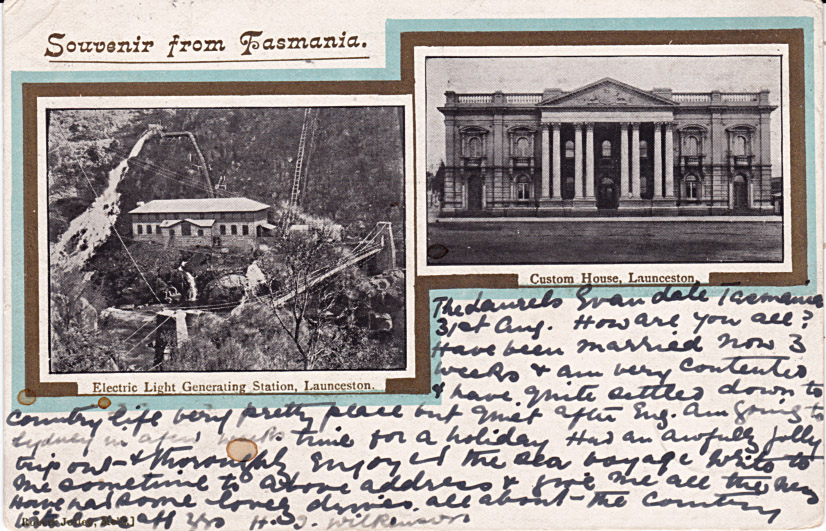 Souvenir from Tasmania.
Custom House, Launceston.
Electric Light Generating Station, Launceston.
The Laurels Evandale Tasmania
31st Aug. How are you all?
Have been married now 3
weeks & am very contented
& have quite settled down to
country life very pretty place but quiet after Eng. Am going to
Sydney in a few weeks time for a holiday Had an awfully jolly
trip out & thoroughly enjoyed the sea voyage Write to
me sometime to above address & give me all the news
Have had some lovely drives all about the country
Wilkinson